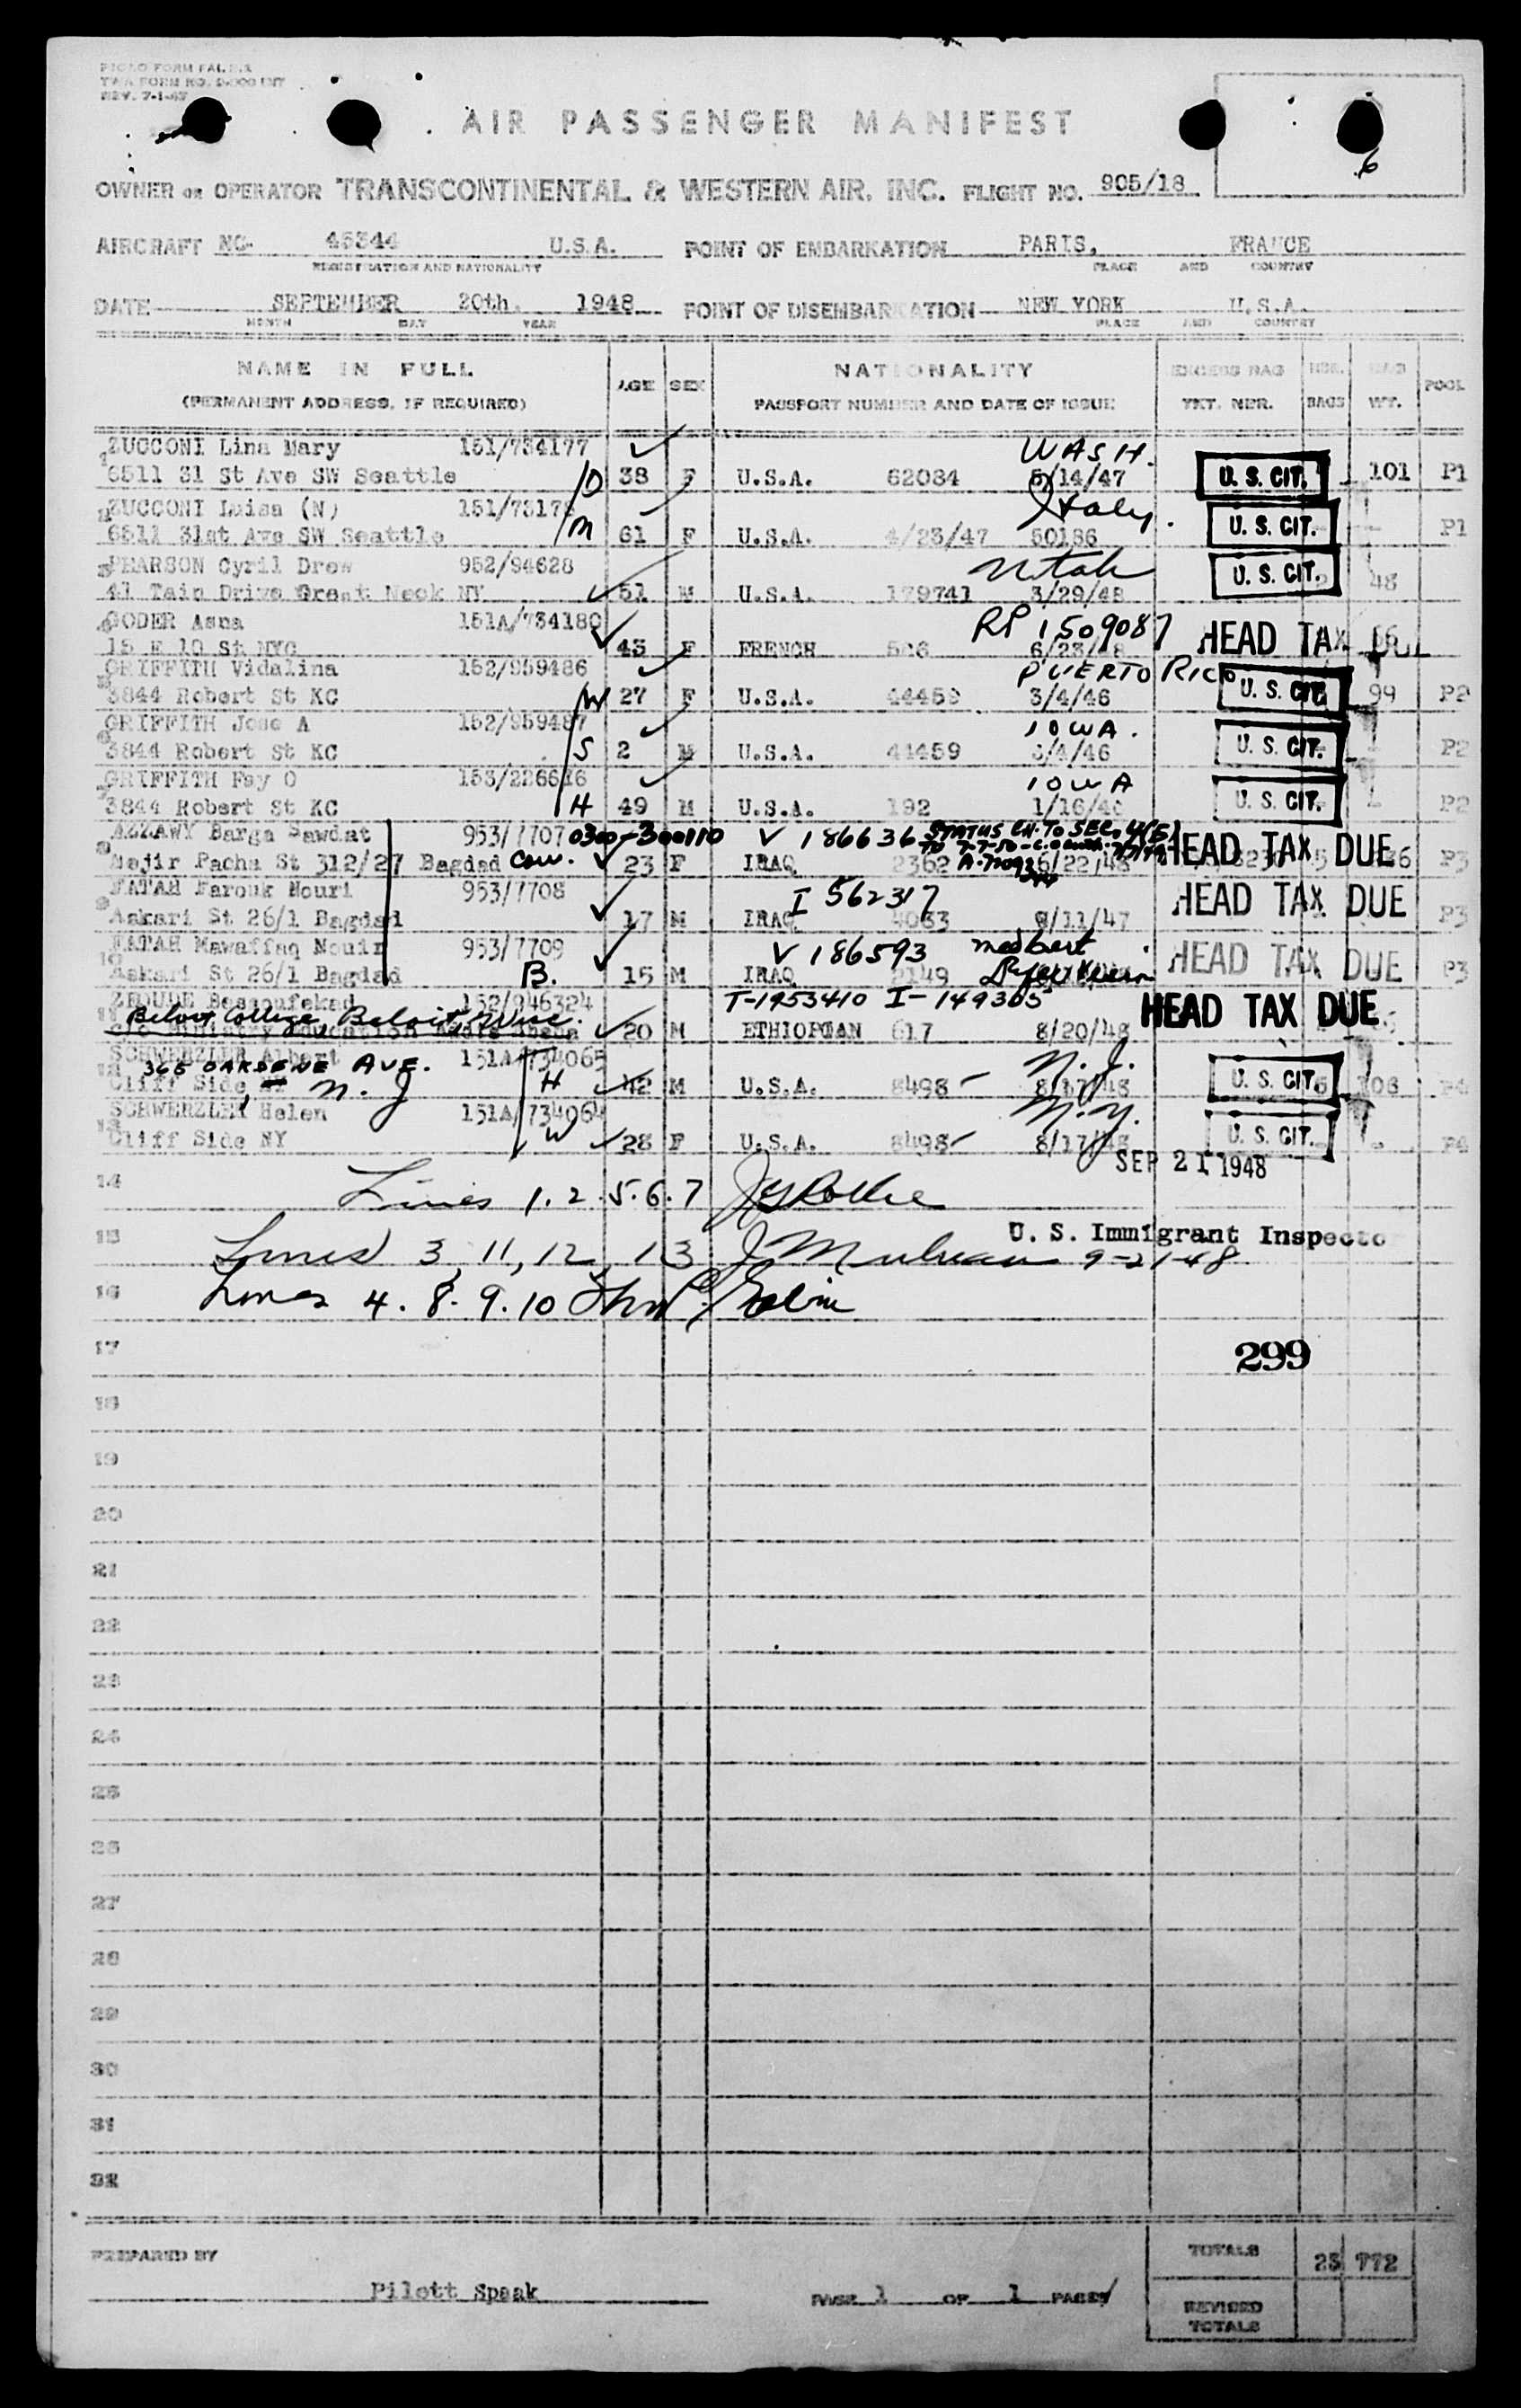 PICAO FORM FAL
TWA FORM NO. INT
REV. 7-1-47
AIR PASSENGER MANIFEST
6
OWNER OR OPERATOR TRANSCONTINENTAL & WESTERN AIR, INC. FLIGHT NO. 905/18
AIRCRAFT NO. 45344 U.S.A. POINT OF EMBARKATION PARIS, FRANCE
REGISTRATION AND NATIONALITY PLACE AND COUNTRY
DATE SEPTEMBER 20th. 1948 POINT OF DISEMBARKATION NEW YORK U.S.A.
MONTH DAY YEAR PLACE AND COUNTRY
NAME IN FULL AGE SEX NATIONALITY EXCESS BAG NBR. BAG POOL
(PERMANENT ADDRESS, IF REQUIRED) PASSPORT NUMBER AND DATE OF ISSUE TKT. NBR. BAGS WT.
1 ZUCCONI Lina Mary 151/734177 WASH.
6511 31 St Ave SW Seattle D 38 F U.S.A. 62084 5/14/47 U. S. CIT. 101 P1
ZUCCONI Luisa (N) 151/73178 Italy.
6511 31st Ave SW Seattle M 61 F U.S.A. 4/23/47 50186 U. S. CIT. P1
PEARSON Cyril Drew 952/94628 Utah
41 Tain Drive Great Neck NY 51 M U.S.A. 179741 3/29/48 U. S. CIT. 48
GODER Asna 151A/734180 RP 1509087 HEAD TAX
15 E 10 St NYC 45 F FRENCH
GRIFFITH Vidalina 152/959486 PUERTO RICO
3844 Robert St KC W 27 F U.S.A. 44459 3/4/46 U. S. CIT. 99 P2
GRIFFITH Jose A 152/959487 IOWA.
3844 Robert St KC S 2 M U.S.A. 44459 3/4/46 U. S. CIT. P2
GRIFFITH Fay O 153/226626 IOWA
3844 Robert St KC H 49 M U.S.A. 192 U. S. CIT. P2
AZZAWY Barga Sawdat 953/7707 0300-300110 V 186636 STATUS CH. TO SEC. 4(E)
Nejir Pacha St 312/27 Bagdad 23 F IRAQ 2362 6/22/48 HEAD TAX DUE P3
FATAH Farouk Nouri 953/7708 I 562317
Askari St 26/1 Bagdad 17 M IRAQ 4063 9/11/47 HEAD TAX DUE P3
FATAH Mawaffaq Nouir 953/7709 V 186593
10 Askari St 26/1 Bagdad B. 15 M IRAQ 2149 HEAD TAX DUE P3
ZEOUDE Bessoufekad 152/946324 T-1953410 I-149305
Beloit College Beloit, Wisc. 20 M ETHIOPIAN 617 8/20/48 HEAD TAX DUE
SCHWERZLER Albert 151A/734065 N. J.
365 OAKDENE AVE.
Cliff Side N. J H 42 M U.S.A. 8498 8/17/48 U. S. CIT. P4
SCHWERZLER Helen 151A/734064 N. Y.
13 Cliff Side NY W 28 F U.S.A. 8498 8/17/48 U. S. CIT. P4
SEP 21 1948
14 Lines 1. 2. 5. 6. 7
U. S. Immigrant Inspector
15 Lines 3, 11, 12, 13 9-21-48
16 Lines 4. 8. 9. 10
17
299
18
19
20
21
22
23
24
25
26
27
28
29
30
31
32
PREPARED BY Pilott Spaak PAGE 1 OF 1 PAGES
TOTALS 25 772
REVISED TOTALS